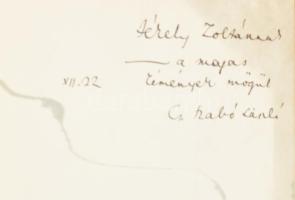 Székely Zoltánnak
— a magas
XII. 22 kémények mögül
Cs. Szabó László